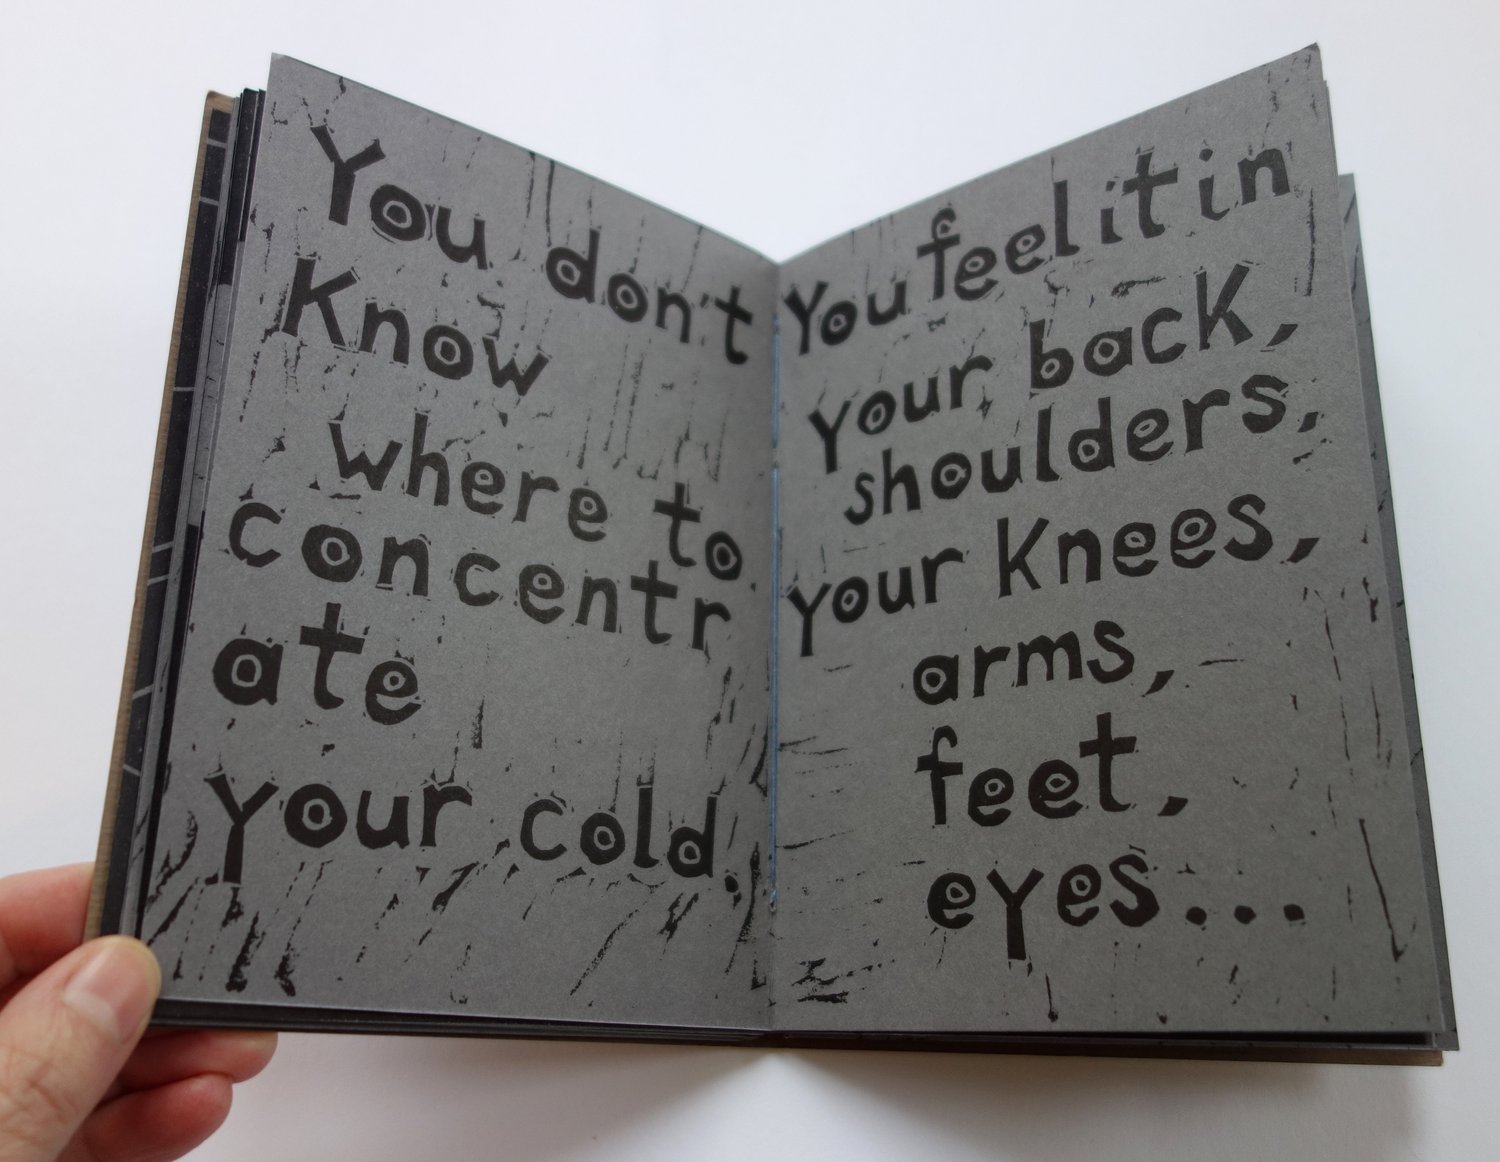 You don't
Know
where to
concentr
ate
your cold.
You feel it in
your back,
shoulders,
your Knees,
arms,
feet,
eyes...